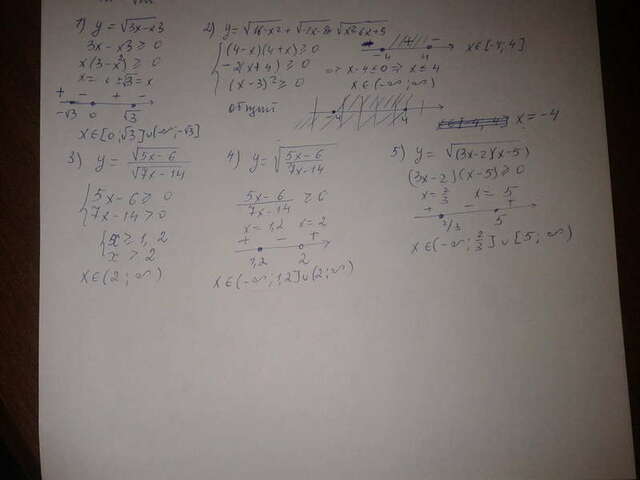 1) y = √3x-x3
3x - x3 ≥ 0
x(3-x²) ≥ 0
+ - + -
-√3 0 √3
x∈[0;√3]∪(-∞;-√3]
2) y = √16-x² + √-2x-8 + √x²-6x+9
(4-x)(4+x) ≥ 0
-4 4
x∈[-4;4]
-2(x+4) ≥ 0 => x-4≤0 => x≤4
(x-3)² ≥ 0 x∈(-∞;∞)
общий
x = -4
3) y = √5x-6 / √7x-14
5x-6 ≥ 0
7x-14 > 0
x ≥ 1,2
x > 2
x∈(2;∞)
4) y = √(5x-6 / 7x-14)
5x-6 / 7x-14 ≥ 0
x = 1,2 x = 2
+ - +
1,2 2
x∈(-∞;1,2]∪(2;∞)
5) y = √(3x-2)(x-5)
(3x-2)(x-5) ≥ 0
x = 2/3 x = 5
+ - +
2/3 5
x∈(-∞;2/3]∪[5;∞)